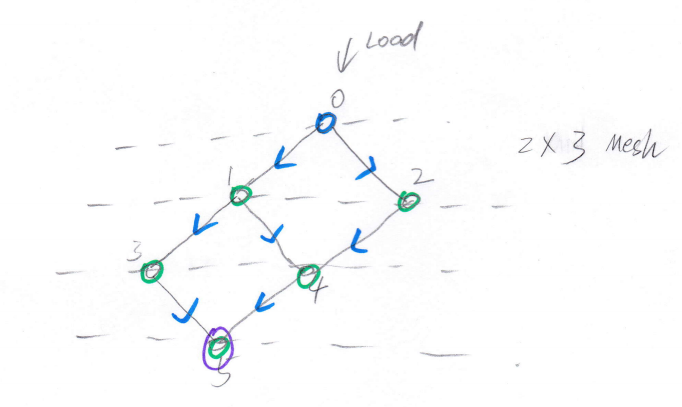 Load
0
2 X 3 Mesh
1
2
3
4
5